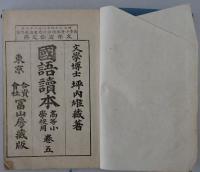 文學博士 坪內雄藏著
國語讀本 高等小學校用 卷五
東京 合資會社 冨山房藏版